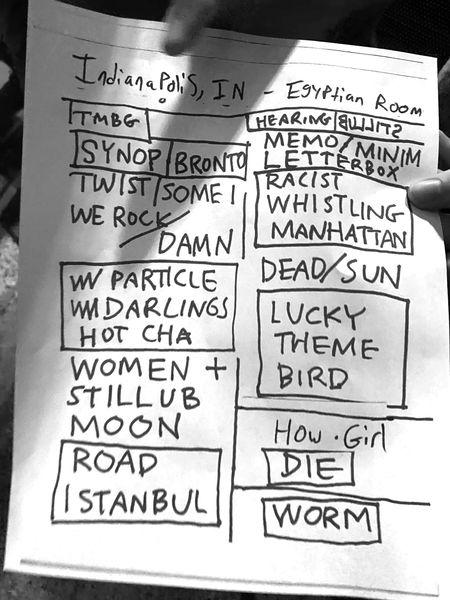 Indianapolis, IN - Egyptian Room
TMBG
SYNOP/BRONTO
TWIST/SOME 1
WE ROCK
DAMN
W/ PARTICLE
W/ DARLINGS
HOT CHA
WOMEN +
STILLUB
MOON
ROAD
ISTANBUL
HEARING BULLITS
MEMO/MINIM
LETTERBOX
RACIST
WHISTLING
MANHATTAN
DEAD/SUN
LUCKY
THEME
BIRD
How · Girl
DIE
WORM